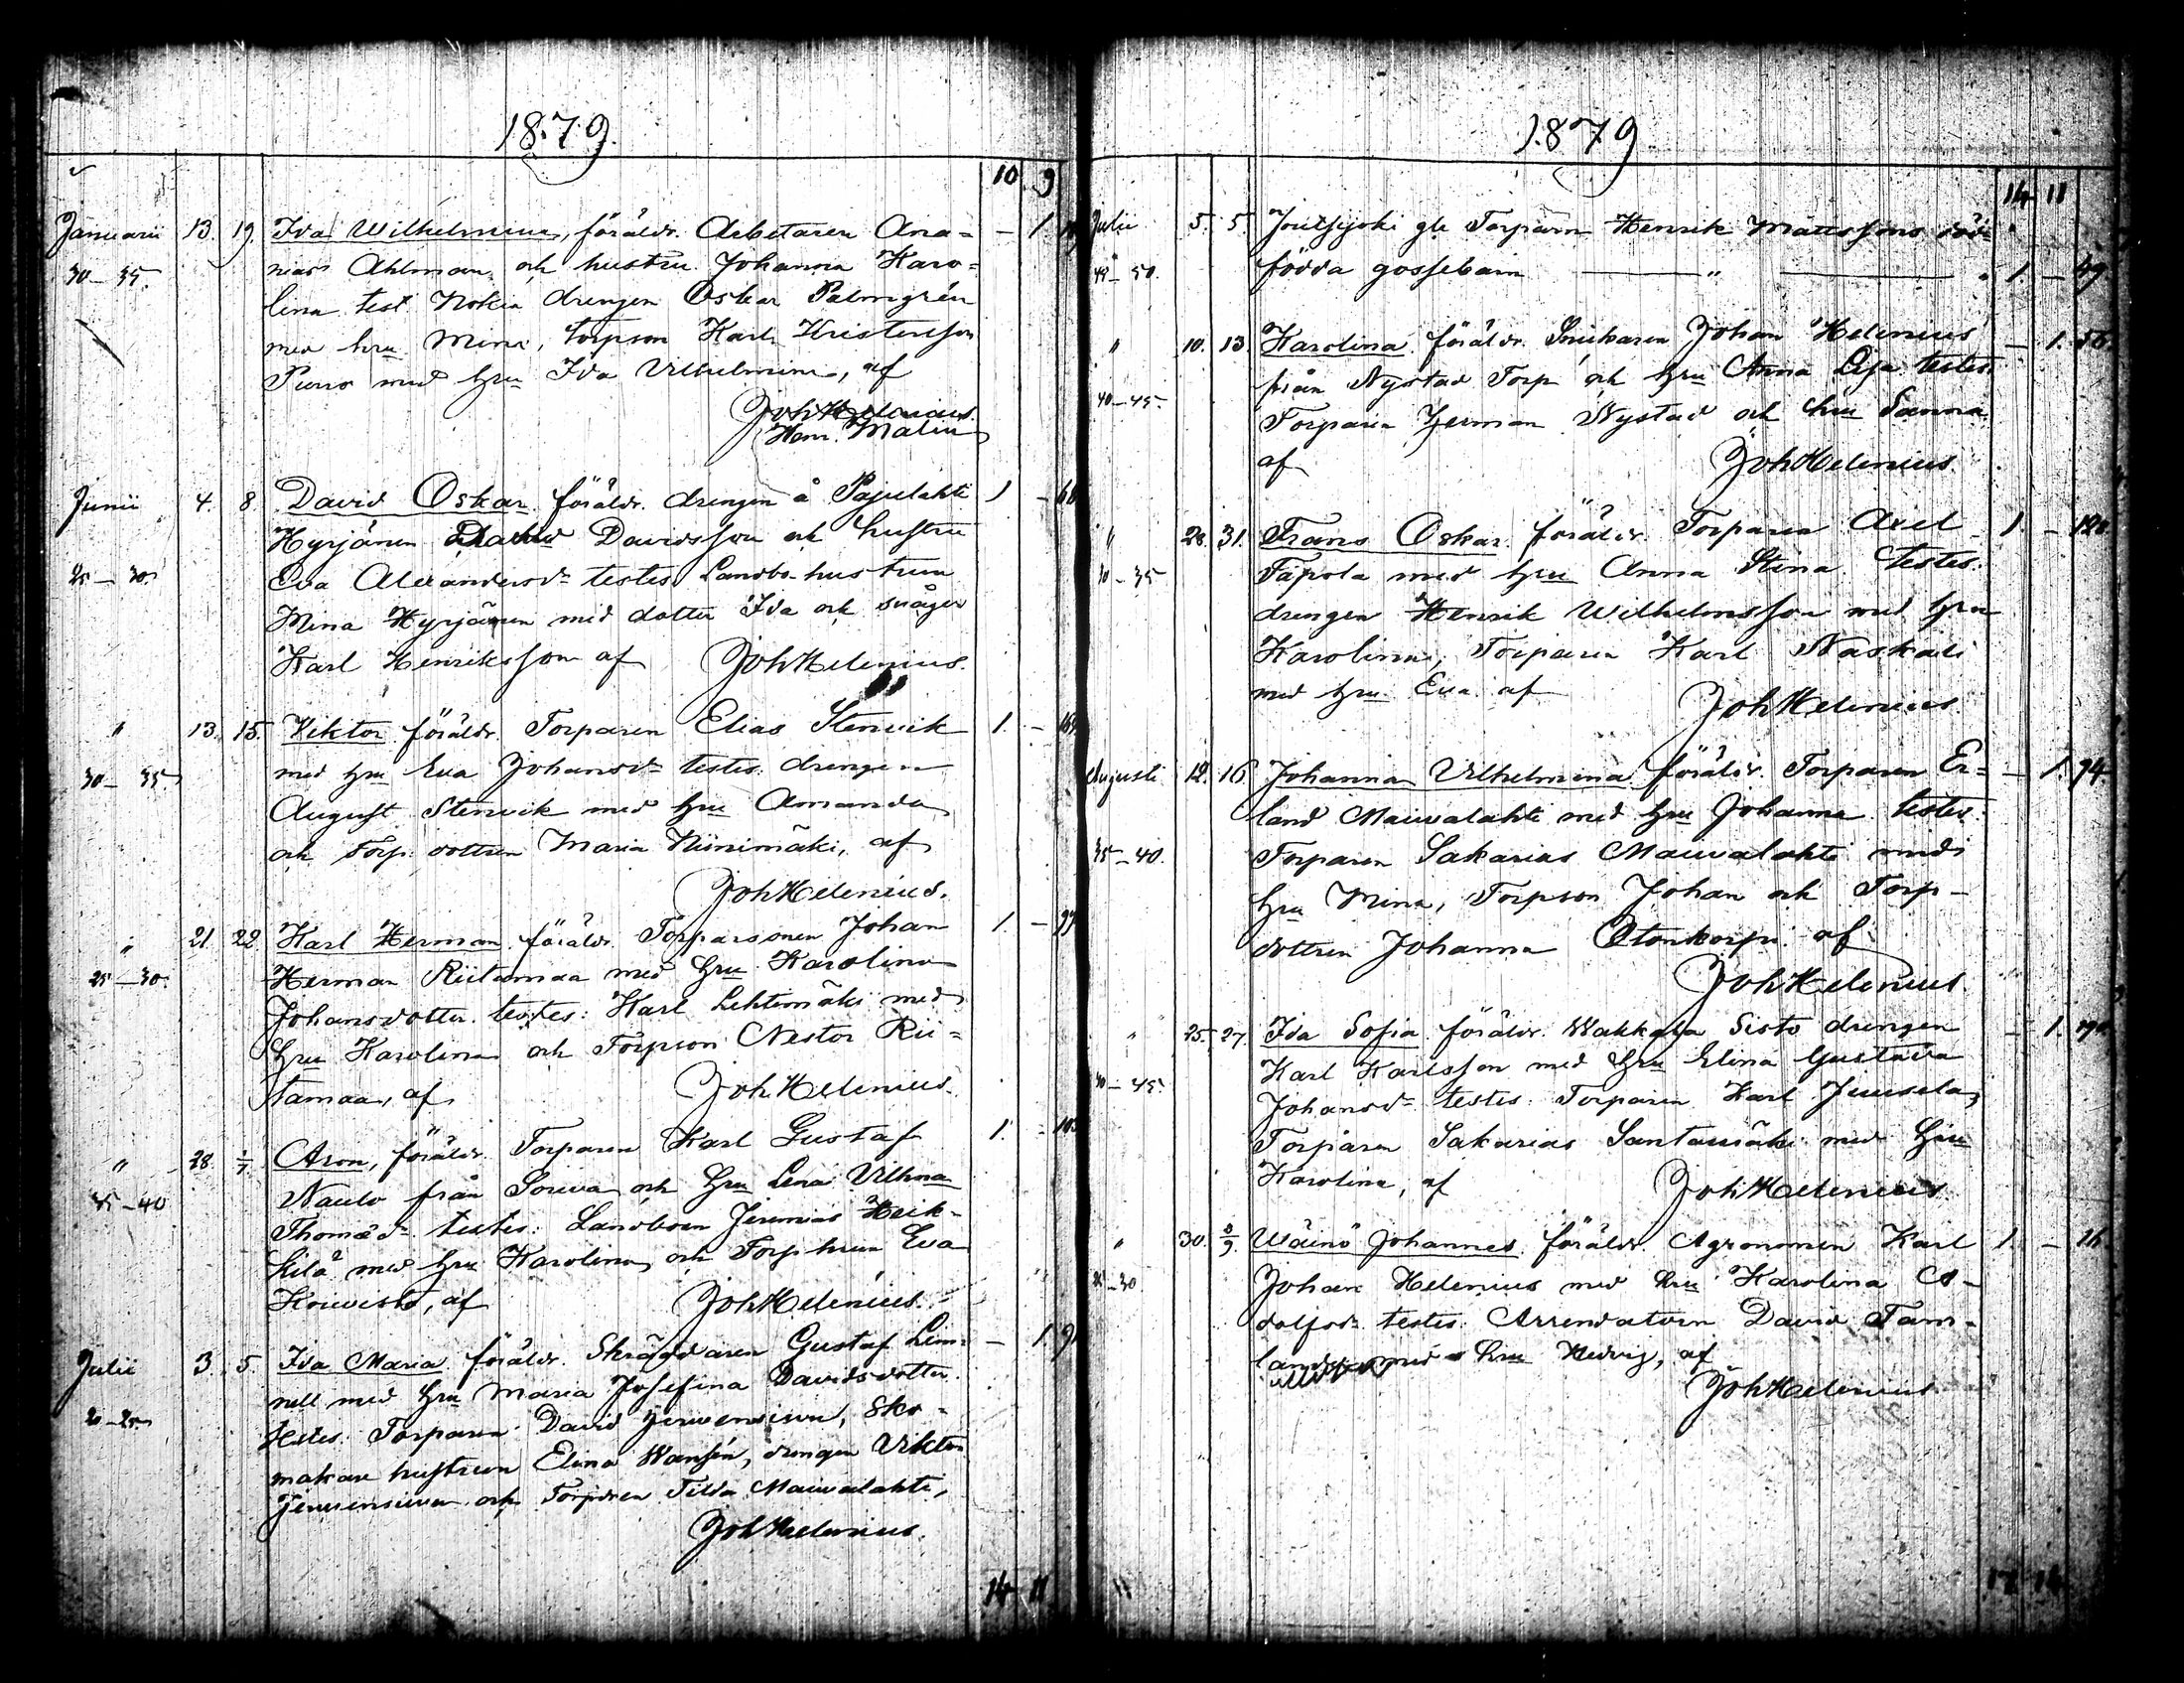 1879.
10 9
Januarii 13. 19. Ida Wilhelmina, föräldr. Arbetaren Ana- — 1
30–35. nias Ahlman och hustru Johanna Karo-
lina test. Nokia drengen Oskar Palmgrén
med hru Mina, torpson Karl Kristersson
Purro med hru Ida Vilhelmina, af
Joh Helenius
Henr. Malin
Junii 4. 8. David Oskar föräldr. drengen å Pajulahti 1 – 68
Hyrjänen David Davidsson och hustru
25–30. Eva Alexandersdr testes Landbo hustrun
Mina Hyrjänen med dotter Ida och svåger
Karl Henriksson af Joh Helenius.
" 13. 15. Viktor föräldr. Torparen Elias Stenvik 1. –
30–35 med hru Eva Johansdr testes: drengen
August Stenvik med hru Amanda
och torp. dottren Maria Niinimäki, af
Joh Helenius.
" 21. 22. Karl Herman föräldr. Torparsonen Johan 1. –
25–30. Herman Riitamaa med hru Karolina
Johansdotter testes: Karl Lehtimäki med
hru Karolina och Torpson Nestor Rii-
tamaa, af Joh Helenius.
" 28. 1/7. Aron, föräldr. Torparen Karl Gustaf 1. –
35–40 Naulo från Souva och hru Lena Vilhma
Thomasdr testes: Landboen Jeremias Heik-
kilä med hru Karolina och Torp hrun Eva
Koivisto, af Joh Helenius.
Julii 3. 5. Ida Maria föräldr. Skräddaren Gustaf Lin- — 1. 91
nell med hru Maria Josefina Davidsdotter.
20–25 testes: Torparen David Jerwensivu, Sko-
makare hustrun Elina Wansén, drengen Viktor
Jerwensivu och Torpdren Tilda Maiwalahti,
Joh Helenius.
14 11
1879
14 11
Julii 5. 5. gle Torparn Henrik Mattssons död-
45–50. födda gossebarn — " — 1. – 49
" 10. 13. Karolina föräldr. Snickaren Johan Helenius — 1. 56
från Nystad Torp och hru Anna Lisa testes
40–45. Torparen Herman Nystad och hru Sanna
af Joh Helenius
" 28. 31. Frans Oskar föräldr. Torparen Axel 1 –
30–35 Täpola med hru Anna Stina testes:
drengen Henrik Wilhelmsson med hru
Karolina, Torparen Karl Naskali
med hru Eva af
Joh Helenius
Augusti 12. 16. Johanna Vilhelmina föräldr. Torparen Er- — 1. 94
land Maiwalahti med hru Johanna testes:
35–40. Torparen Sakarias Maiwalahti med
hru Mina, Torpson Johan och Torp-
dottren Johanna Otonkorpi af
Joh Helenius.
" 25. 27. Ida Sofia föräldr. Wakkala Sisto drengen – 1.
Karl Karlsson med hru Elina Gustava
40–45. Johansdr testes: Torparen Karl Juusela,
Torparen Sakarias Santamäki med hru
Karolina, af Joh Helenius
" 30. 9. Wäinö Johannes föräldr. Agronomen Karl 1. –
25–30 Johan Helenius med hru Karolina A-
dolfsdr testes: Arrendatorn David Tam-
lander med hru Hedvig, af
Joh Helenius